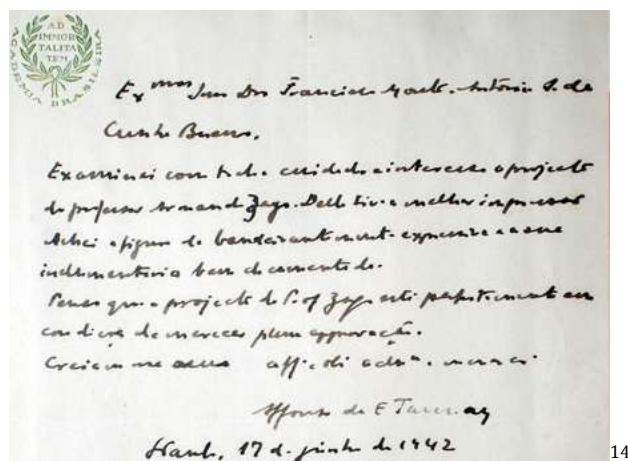 AD IMMORTALITATEM
ACADEMIA BRASILEIRA
Ex.mos Snrs Drs Francisco António S. da
Cunha Bueno,
Examinei com todo cuidado e interesse o projecto
do professor Armando Zago. Delle tive a melhor impressão
Achei a figura do bandeirante muito expressiva e a sua
indumentaria bem documentada.
Penso que o projecto do Prof Zago está perfeitamente em
condições de merecer plena approvação.
Creiam me
Affonso de E Taunay
17 de junho de 1942
14